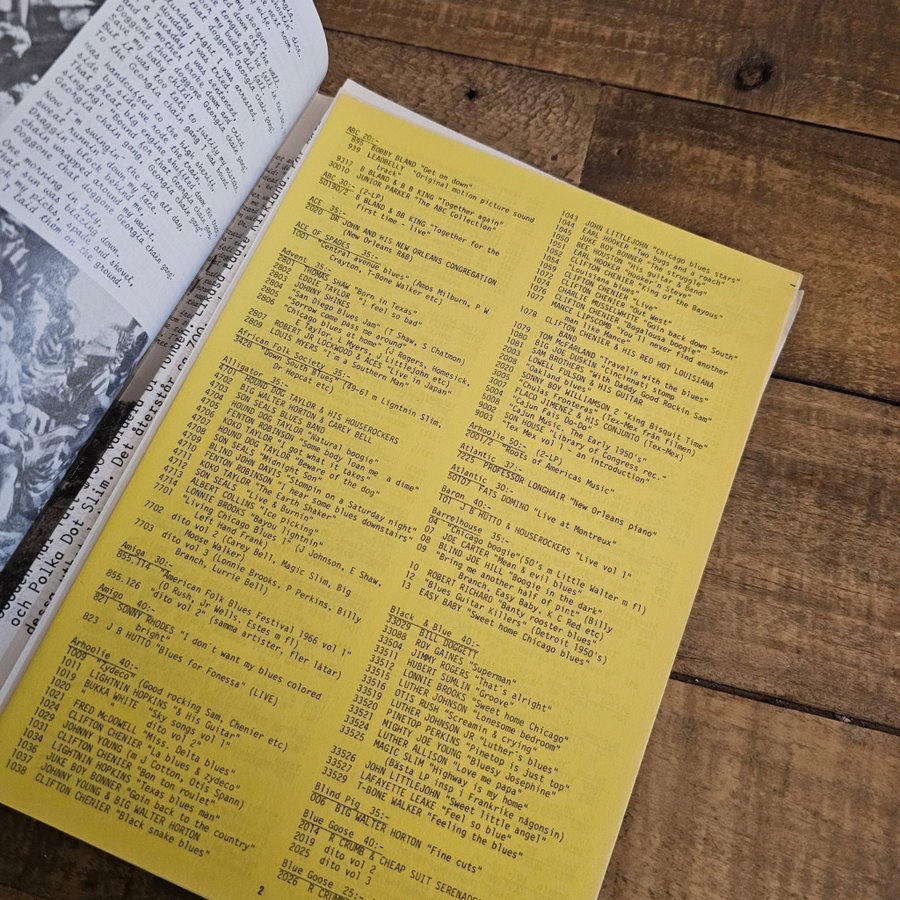 the next room.
shotgun off the wall,
Saturday night I was arrested,
Monday I was tried,
a Tuesday I was sentenced,
doggone mother broke down and cried.
that doggone Georgia chain gang
handcuffed me to the high sheriff,
side by side we rode the train,
That great big engine hustlin'
singing "Bound for that Georgia chain gang,
Georgia chain gang"
Now I'm swingin' my pick all day,
sweat runnin' down my face.
Draggin' a block behind me,
Chain wrapped around my waist.
Doggone that doggone Georgia chain gang
One morning in July,
that sun was blazing down.
laid them on the ground,
och Polka Dot Slim. Det återstår
ABC 20:-
895 BOBBY BLAND "Get on down"
939 LEADBELLY "Original motion picture sound
track"
9317 B BLAND & B B KING "Together again"
30010 JUNIOR PARKER "The ABC Collection"
ABC 30:- (2-LP)
50190/2 B BLAND & BB KING "Together for the
first time - live"
ACE 35:-
2020 DR JOHN AND HIS NEW ORLEANS CONGREGATION
(New Orleans R&B)
ACE OF SPADES 35:-
1001 "Central avenue blues" (Amos Milburn, P W
Crayton, T-Bone Walker etc)
Advent 35:-
2801 THOMAS SHAW "Born in Texas"
2802 LOUIE TAYLOR "I feel so bad"
2803 JOHNNY SHINES
2804 "San Diego Blues Jam" (T Shaw, S Chatmon)
2805 "Sorrow come pass me around"
2806 "Chicago blues at home" (J Rogers, Homesick,
E Taylor, L Myers, J Littlejohn etc)
2807 ROBERT LOCKWOOD & ACES "Live in Japan"
2809 LOUIS MYERS "I'm a Southern Man"
African Folk Society 35:-
3428 "Down South Blues" (49-61 m Lightnin Slim,
Dr Hepcat etc)
Alligator 35:-
4701 HOUND DOG TAYLOR & HIS HOUSEROCKERS
4702 BIG WALTER HORTON & CAREY BELL
4703 SON SEALS BLUES BAND
4704 HOUND DOG TAYLOR "Natural boogie"
4705 FENTON ROBINSON "Some body loan me a dime"
4706 KOKO TAYLOR "I got what it takes"
4707 HOUND DOG TAYLOR "Beware of the dog"
4708 SON SEALS "Midnight Son"
4709 BLIND JOHN DAVIS "Stompin on a Saturday night"
4710 FENTON ROBINSON "I hear some blues downstairs"
4711 KOKO TAYLOR "The Earth Shaker"
4712 SON SEALS "Live & Burnin"
4713 ALBERT COLLINS "Ice picking"
4714 LONNIE BROOKS "Bayou lightnin"
7701 "Living Chicago Blues 1" (J Johnson, E Shaw,
Left Hand Frank)
7702 dito vol 2 (Carey Bell, Magic Slim, Big
Moose Walker)
7703 dito vol 3 (Lonnie Brooks, P Perkins, Billy
Branch, Lurrie Bell)
Amiga 30:-
855.114 "American Folk Blues Festival 1966 vol 1"
(O Rush, Jr Wells, Estes m fl)
855.126 "dito vol 2" (samma artister, fler låtar)
Amigo 40:-
821 SONNY RHODES "I don't want my blues colored
bright"
823 J B HUTTO "Blues for Fonessa" (LIVE)
Arhoolie 40:-
1009 "Zydeco" (Good rocking sam, Chenier etc)
1011 LIGHTNIN HOPKINS "& His Guitar"
1019 BUKKA WHITE "Sky songs vol 1"
1020 " dito vol 2"
1021 FRED McDOWELL "Miss. Delta blues"
1024 CLIFTON CHENIER "La blues & zydeco"
1029 JOHNNY YOUNG (m J Cotton, Otis Spann)
1031 CLIFTON CHENIER "Bon ton roulet"
1034 LIGHTNIN HOPKINS "Texas blues man"
1036 JUKE BOY BONNER "Goin back to the country"
1037 JOHNNY YOUNG & BIG WALTER HORTON
1038 CLIFTON CHENIER "Black snake blues"
1043 JOHN LITTLEJOHN "Chicago blues stars"
1044 EARL HOOKER "Two bugs and a roach"
1045 JUKE BOY BONNER "The struggle"
1050 BEE HOUSTON "His Guitar & Band"
1051 EARL HOOKER "Hooker & Steve"
1052 CLIFTON CHENIER "King of the Bayous"
1059 CLIFTON CHENIER "Live"
1072 CLIFTON CHENIER "Out West"
1074 CHARLIE MUSSELWHITE "Goin back down South"
1076 CLIFTON CHENIER "Bogalousa boogie"
1077 MANCE LIPSCOMB "You'll never find another
man like Mance"
1078 CLIFTON CHENIER & HIS RED HOT LOUISIANA
BAND
1079 TOM McFARLAND "Travelin with the blues"
1080 BIG JOE DUSKIN "Cincinnati Stomp"
1081 SAM BROTHERS 5 with Daddy Good Rockin Sam"
2003 LOWELL FULSON & HIS GUITAR
2008 "Oakland blues"
2020 SONNY BOY WILLIAMSON 2 "King Bisquit Time"
3005 "Chulas Fronteras" (Tex-Mex från filmen)
3007 FLACO JIMENEZ & HIS CONJUNTO (Tex-Mex)
5004 "Cajun Fais Do-Do"
5008 "Cajun Music, The Early 1950's"
9002 SON HOUSE "Library of Congress rec."
9003 "Tex Mex vol 1 - an introduction"
Arhoolie 50:- (2-LP)
2001/2 "Roots of Americas Music"
Atlantic 37:-
7225 PROFESSOR LONGHAIR "New Orleans piano"
Atlantic 30:-
50107 FATS DOMINO "Live at Montreux"
Baron 40:-
101 J B HUTTO & HOUSEROCKERS "Live vol 1"
Barrelhouse 35:-
04 "Chicago boogie" (50's m Little Walter m fl)
07 JOE CARTER "Mean & evil blues"
08 BLIND JOE HILL "Boogie in the dark"
09 "Bring me another half of pint" (Billy
Branch, Easy Baby, K C Red etc)
10 ROBERT RICHARD "Banty rooster blues"
12 "Blues Guitar killers" (Detroit 1950's)
13 EASY BABY "Sweet home Chicago blues"
Black & Blue 40:-
33029 BILL DOGGETT
33088 ROY GAINES "Superman"
33504 JIMMY ROGERS "That's alright"
33511 HUBERT SUMLIN "Groove"
33512 LONNIE BROOKS "Sweet home Chicago"
33515 LUTHER JOHNSON "Lonesome bedroom"
33516 OTIS RUSH "Screamin & crying"
33519 LUTHER JOHNSON JR "Luther's blues"
33520 PINETOP PERKINS "Pinetop is just top"
33521 MIGHTY JOE YOUNG "Bluesy Josephine"
33524 LUTHER ALLISON "Love me papa"
33525 MAGIC SLIM "Highway is my home"
(Bästa LP insp i Frankrike någonsin)
33526 JOHN LITTLEJOHN "Sweet little angel"
33527 LAFAYETTE LEAKE "Feel so blue"
33529 T-BONE WALKER "Feeling the blues"
Blind Pig 35:-
006 BIG WALTER HORTON "Fine cuts"
Blue Goose 40:-
2014 R CRUMB & CHEAP SUIT SERENADE
2019 dito vol 2
2025 dito vol 3
Blue Goose 25:-
2026 R CRUM
2